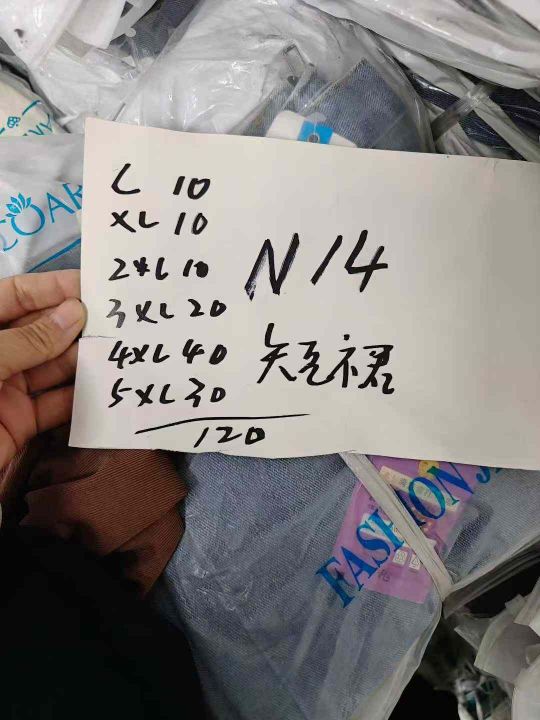 L 10
XL 10
2XL 10
3XL 20
4XL 40
5XL 30
120
N14
短裙
COAR
FASHION J